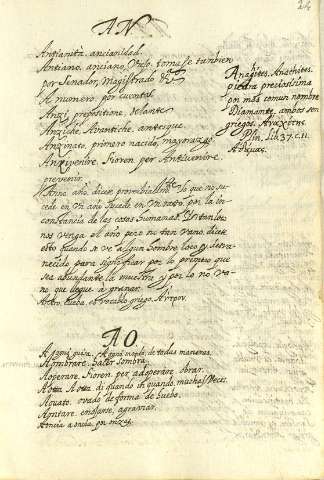 24
AN
Antianità. ancianidad.
Antiano. anciano, Viejo. tomase tambien
por Senador, Magistrado &c.
A numero. por cuenta.
Anzi, prepositione. delante
Anziche. Avantiche. antesque
Anzinato. primero nacido, mayorazgo
Antivenire. Fioren por Antivenire.
prevenir.
Anno. año, dicese proverbialmente lo que no su-
cede en un año sucede en un , por la in-
constancia de las cosas humanas.
nos venga el año pero no tan vano, dicese
esto quando se ve algun hombre loco y desva-
necido para significar por lo primero que
sea abundante la muestra y por lo no va-
no que llegue a granar.
Antro. cueba. es vocablo griego. Ἄντρον.
Anachites. Anachites.
piedra preciosissima
por mas comun nombre
Diamante, ambos son
griegos.
Plin. Lib. 37. c. 11.
AO.
A ogni guisa. A ogni modo. de todas maneras
Aombrare. hacer sombra.
Aoperare. Fioren por adoperare. obrar.
Aotta aotta. di quando in quando. muchas veces.
Aouato. ovado de forma de huebo.
Aontare. enojarse, agraviar.